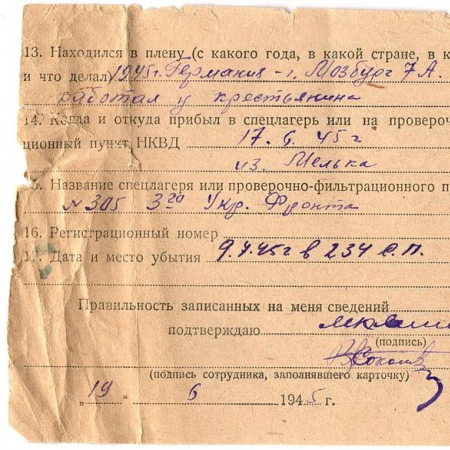 13. Находился в плену (с какого года, в какой стране, в к
и что делал) 1945 г. Германия - г. Мозбург 7 А.
работал у крестьянина
14. Когда и откуда прибыл в спецлагерь или на провероч
ционный пункт НКВД 17.6.45 г
из Мелька
5. Название спецлагеря или проверочно-фильтрационного п
№ 305 3го Укр. Фронта
16. Регистрационный номер
17. Дата и место убытия 9.7.45 г в 234 с.п.
Правильность записанных на меня сведений
подтверждаю
(подпись)
(подпись сотрудника, заполнявшего карточку)
„19" 6 1945 г.